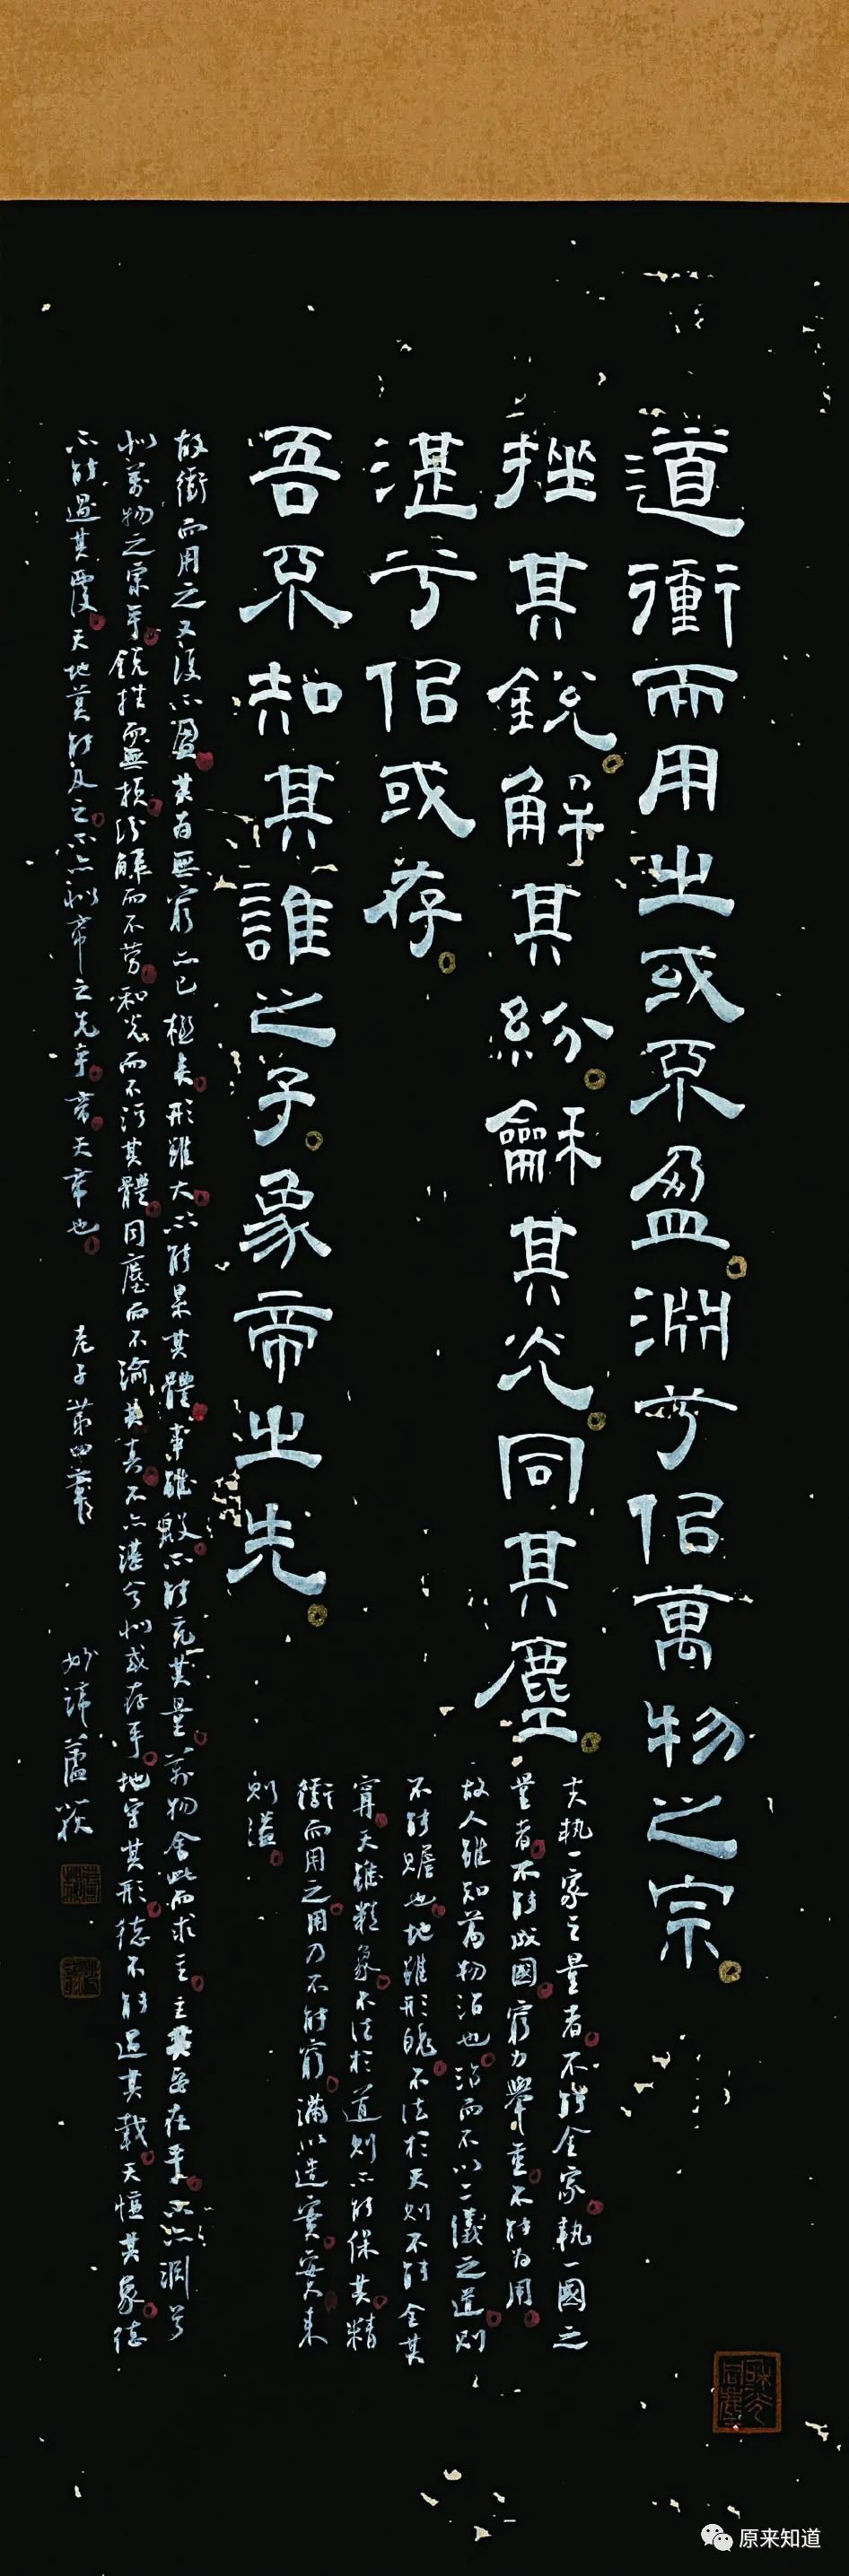 道衝而用之或不盈淵兮佀萬物之宗
挫其銳解其紛龢其光同其塵
夫執一家之量者不能全家執一國之
量者不能成國窮力舉重不能為用
故人雖知萬物治也治而不以二儀之道則
不能贍也地雖形魄不法於天則不能全其
寧天雖精象不法於道則不能保其精
衝而用之用乃不能窮滿以造實實來
則溢
湛兮佀或存
吾不知其誰之子象帝之先
故衝而用之又復不盈其為無窮亦已極矣形雖大不能累其體事雖殷不能充其量萬物舍此而求主主其安在乎不亦淵兮
似萬物之宗乎銳挫而無損紛解而不勞和光而不污其體同塵而不渝其真不亦湛兮似或存乎地守其形德不能過其載天慊其象德
不能過其覆天地莫能及之不亦似帝之先乎帝天帝也 老子第四章 妙諦蘆荻
和光同塵
原来知道